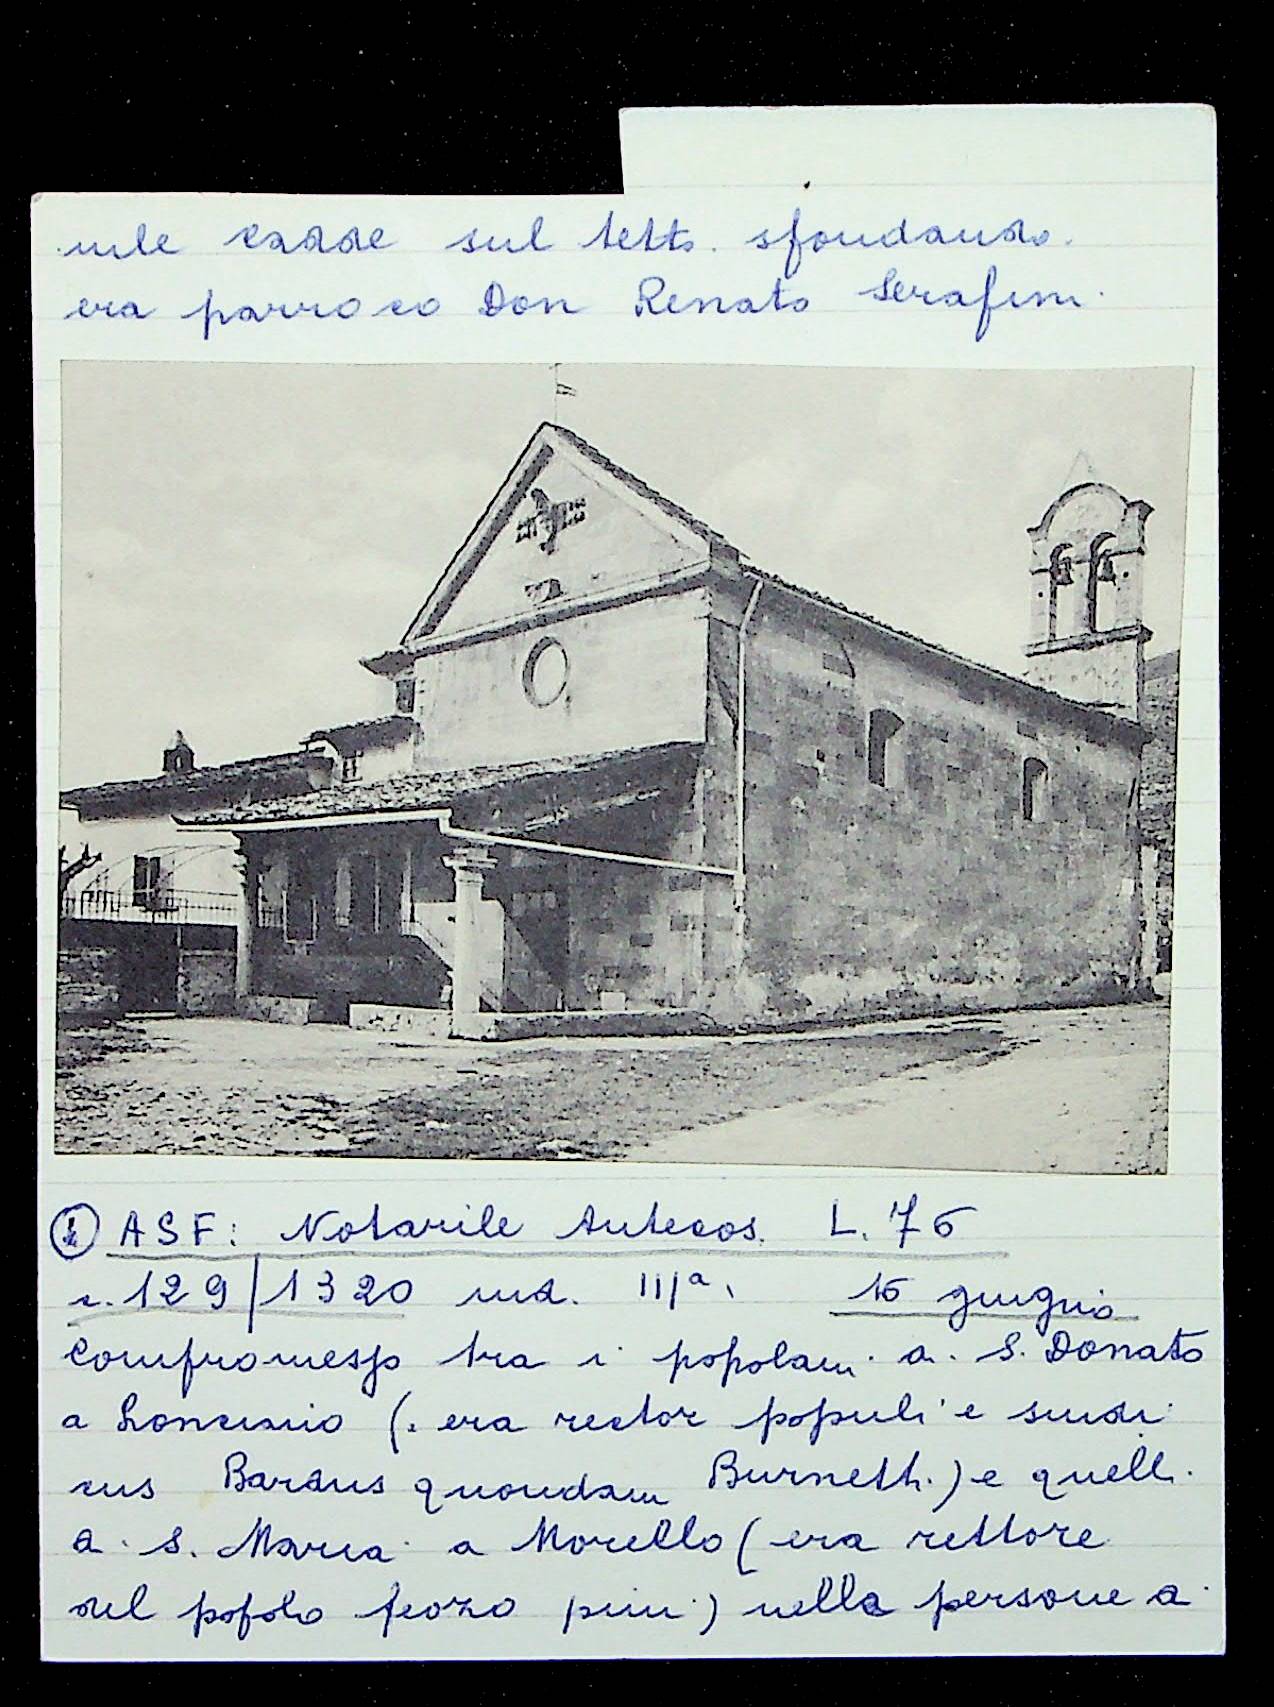 nile cadde sul tetto sfondando.
era parroco Don Renato Serafini.
① ASF: Notarile Antecos. L. 76
c. 129 | 1320 ind. IIIª, 16 giugno
Compromesso tra i popolani di S. Donato
a Lonciano (: era rector populi e sindi
cus Bardus quondam Burnetti) e quelli
di S. Maria a Morello (era rettore
del popolo pini) nelle persone di